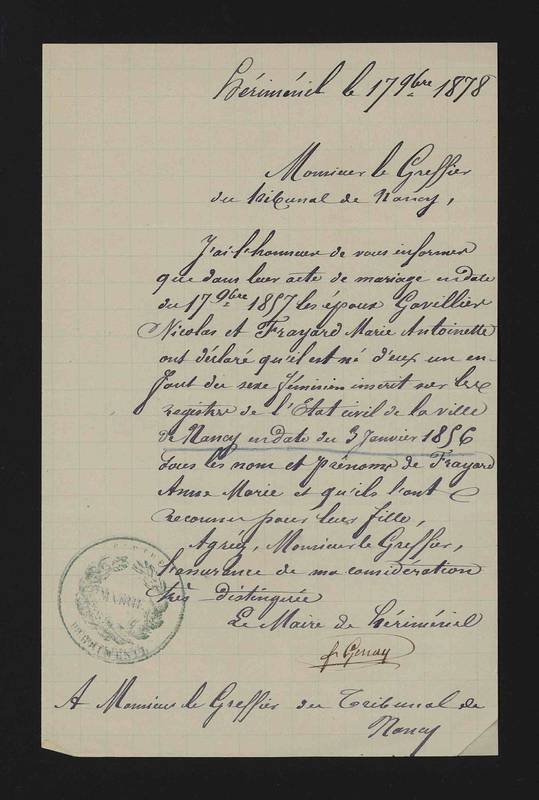 Hériménil le 17 9bre 1878
Monsieur le Greffier
du tribunal de Nancy,
J'ai l'honneur de vous informer
que dans leur acte de mariage en date
du 17 9bre 1857 les époux Gavillier
Nicolas et Frayard Marie Antoinette
ont déclaré qu'il est né d'eux un en-
fant du sexe féminin inscrit sur les
registres de l'Etat civil de la ville
de Nancy en date du 3 Janvier 1856
sous les nom et prénoms de Frayard
Anne Marie et qu'ils l'ont
reconnu pour leur fille,
Agréez, Monsieur le Greffier,
l'assurance de ma considération
très distinguée
Le Maire de Hériménil
MAIRIE
A Monsieur le Greffier du Tribunal de
Nancy